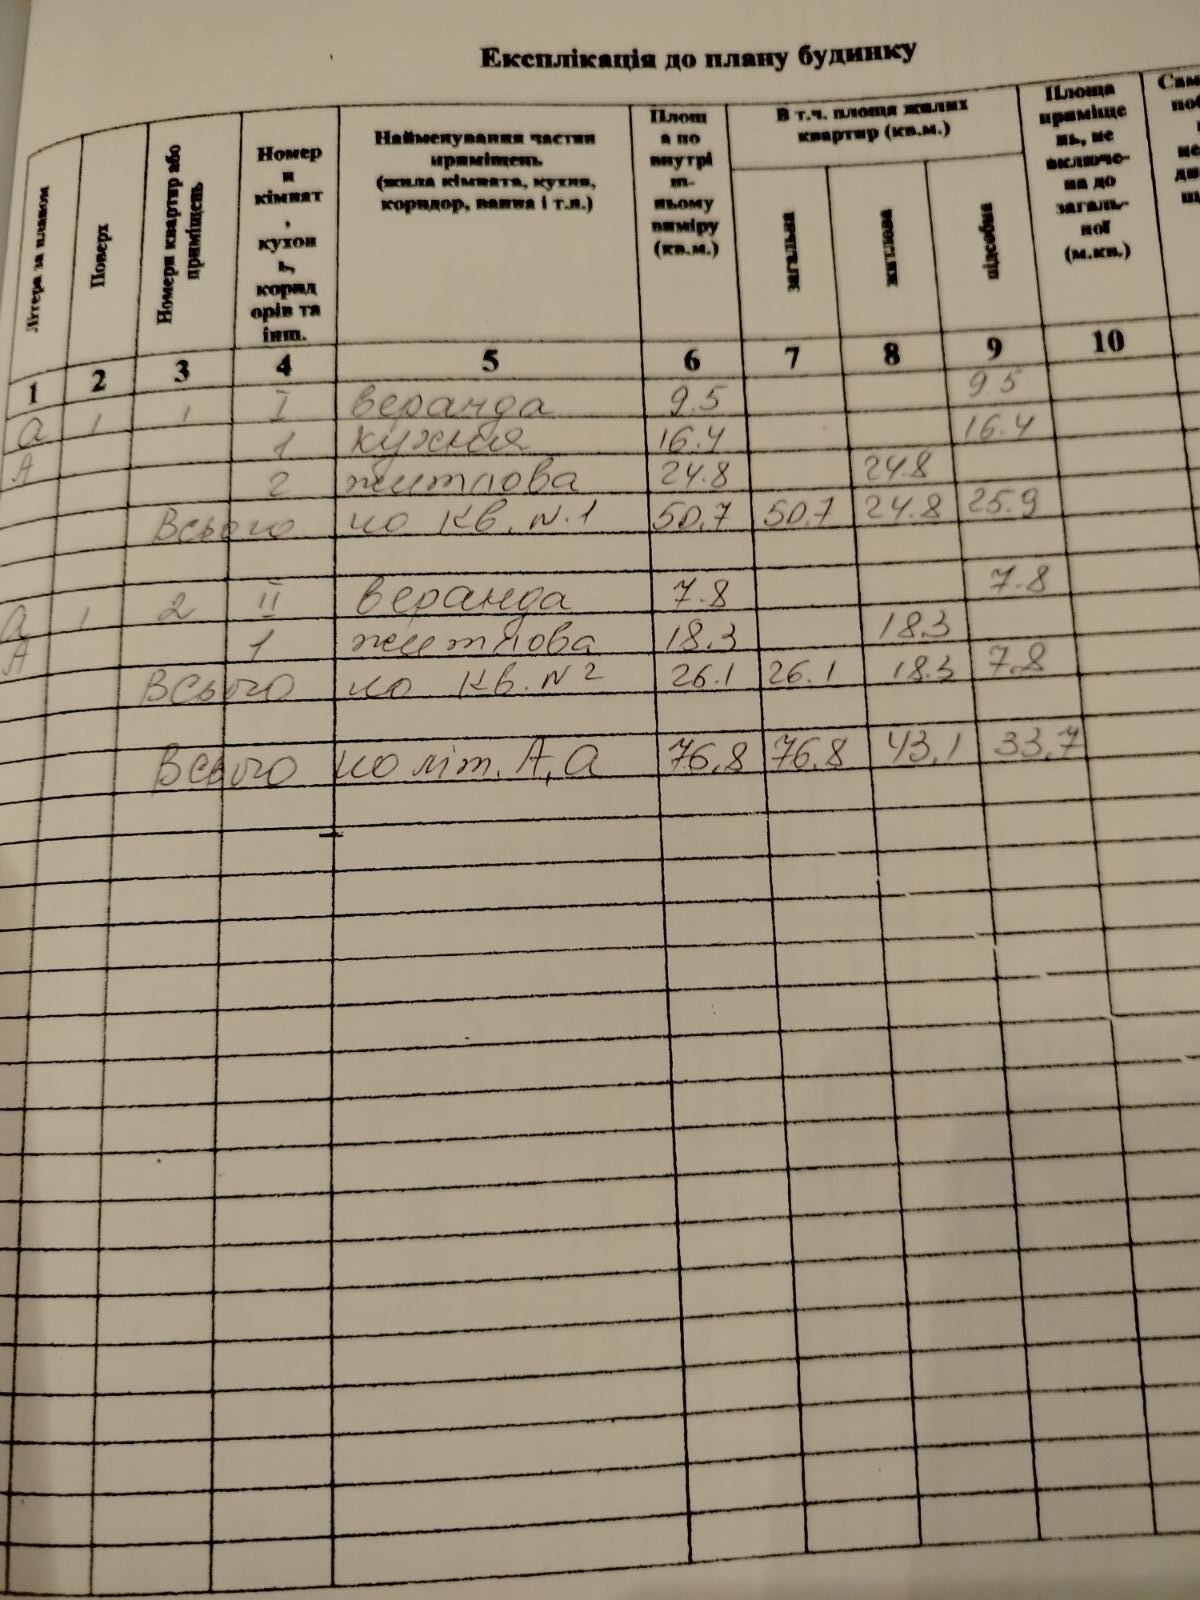 Експлікація до плану будинку
Літера за планом
Поверх
Номери квартир або приміщень
Номери кімнат, кухонь, коридорів та інш.
Найменування частин приміщень (жила кімната, кухня, коридор, ванна і т.п.)
Площа по внутрішньому виміру (кв.м.)
В т.ч. площа жилих квартир (кв.м.)
загальна
житлова
підсобна
Площа приміщень, не включена до загальної (м.кв.)
1 2 3 4 5 6 7 8 9 10
а 1 1 I веранда 9.5 9.5
А 1 кухня 16.4 16.4
2 житлова 24.8 24.8
Всього по кв. N.1 50.7 50.7 24.8 25.9
а 1 2 II веранда 7.8 7.8
А 1 житлова 18.3 18.3
Всього по кв. N2 26.1 26.1 18.3 7.8
Всього по літ. А, а 76.8 76.8 43.1 33.7